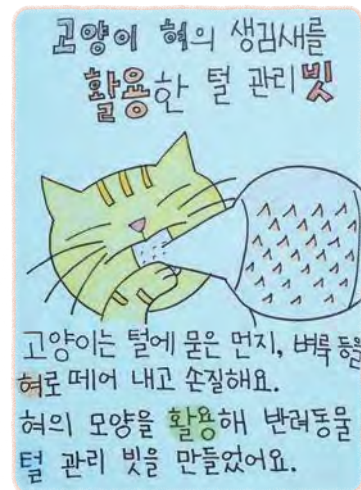 고양이 혀의 생김새를
활용한 털 관리 빗
고양이는 털에 묻은 먼지, 벼룩 등을
혀로 떼어 내고 손질해요.
혀의 모양을 활용해 반려동물
털 관리 빗을 만들었어요.